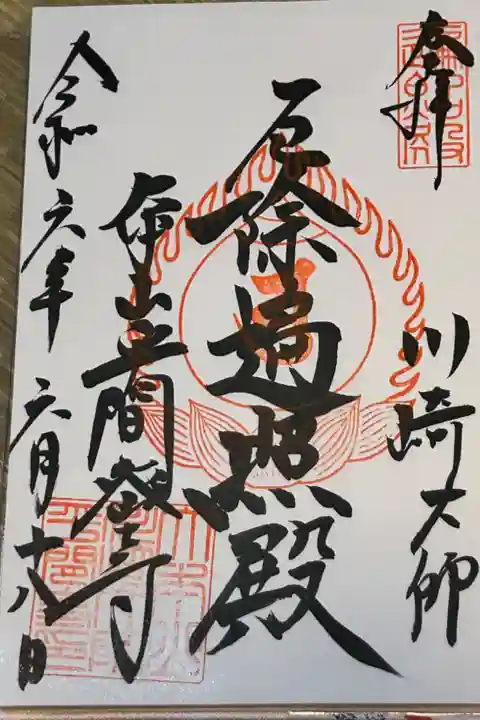 奉拝
川崎大師
厄除遍照殿
本山平間寺
令和六年六月十八日